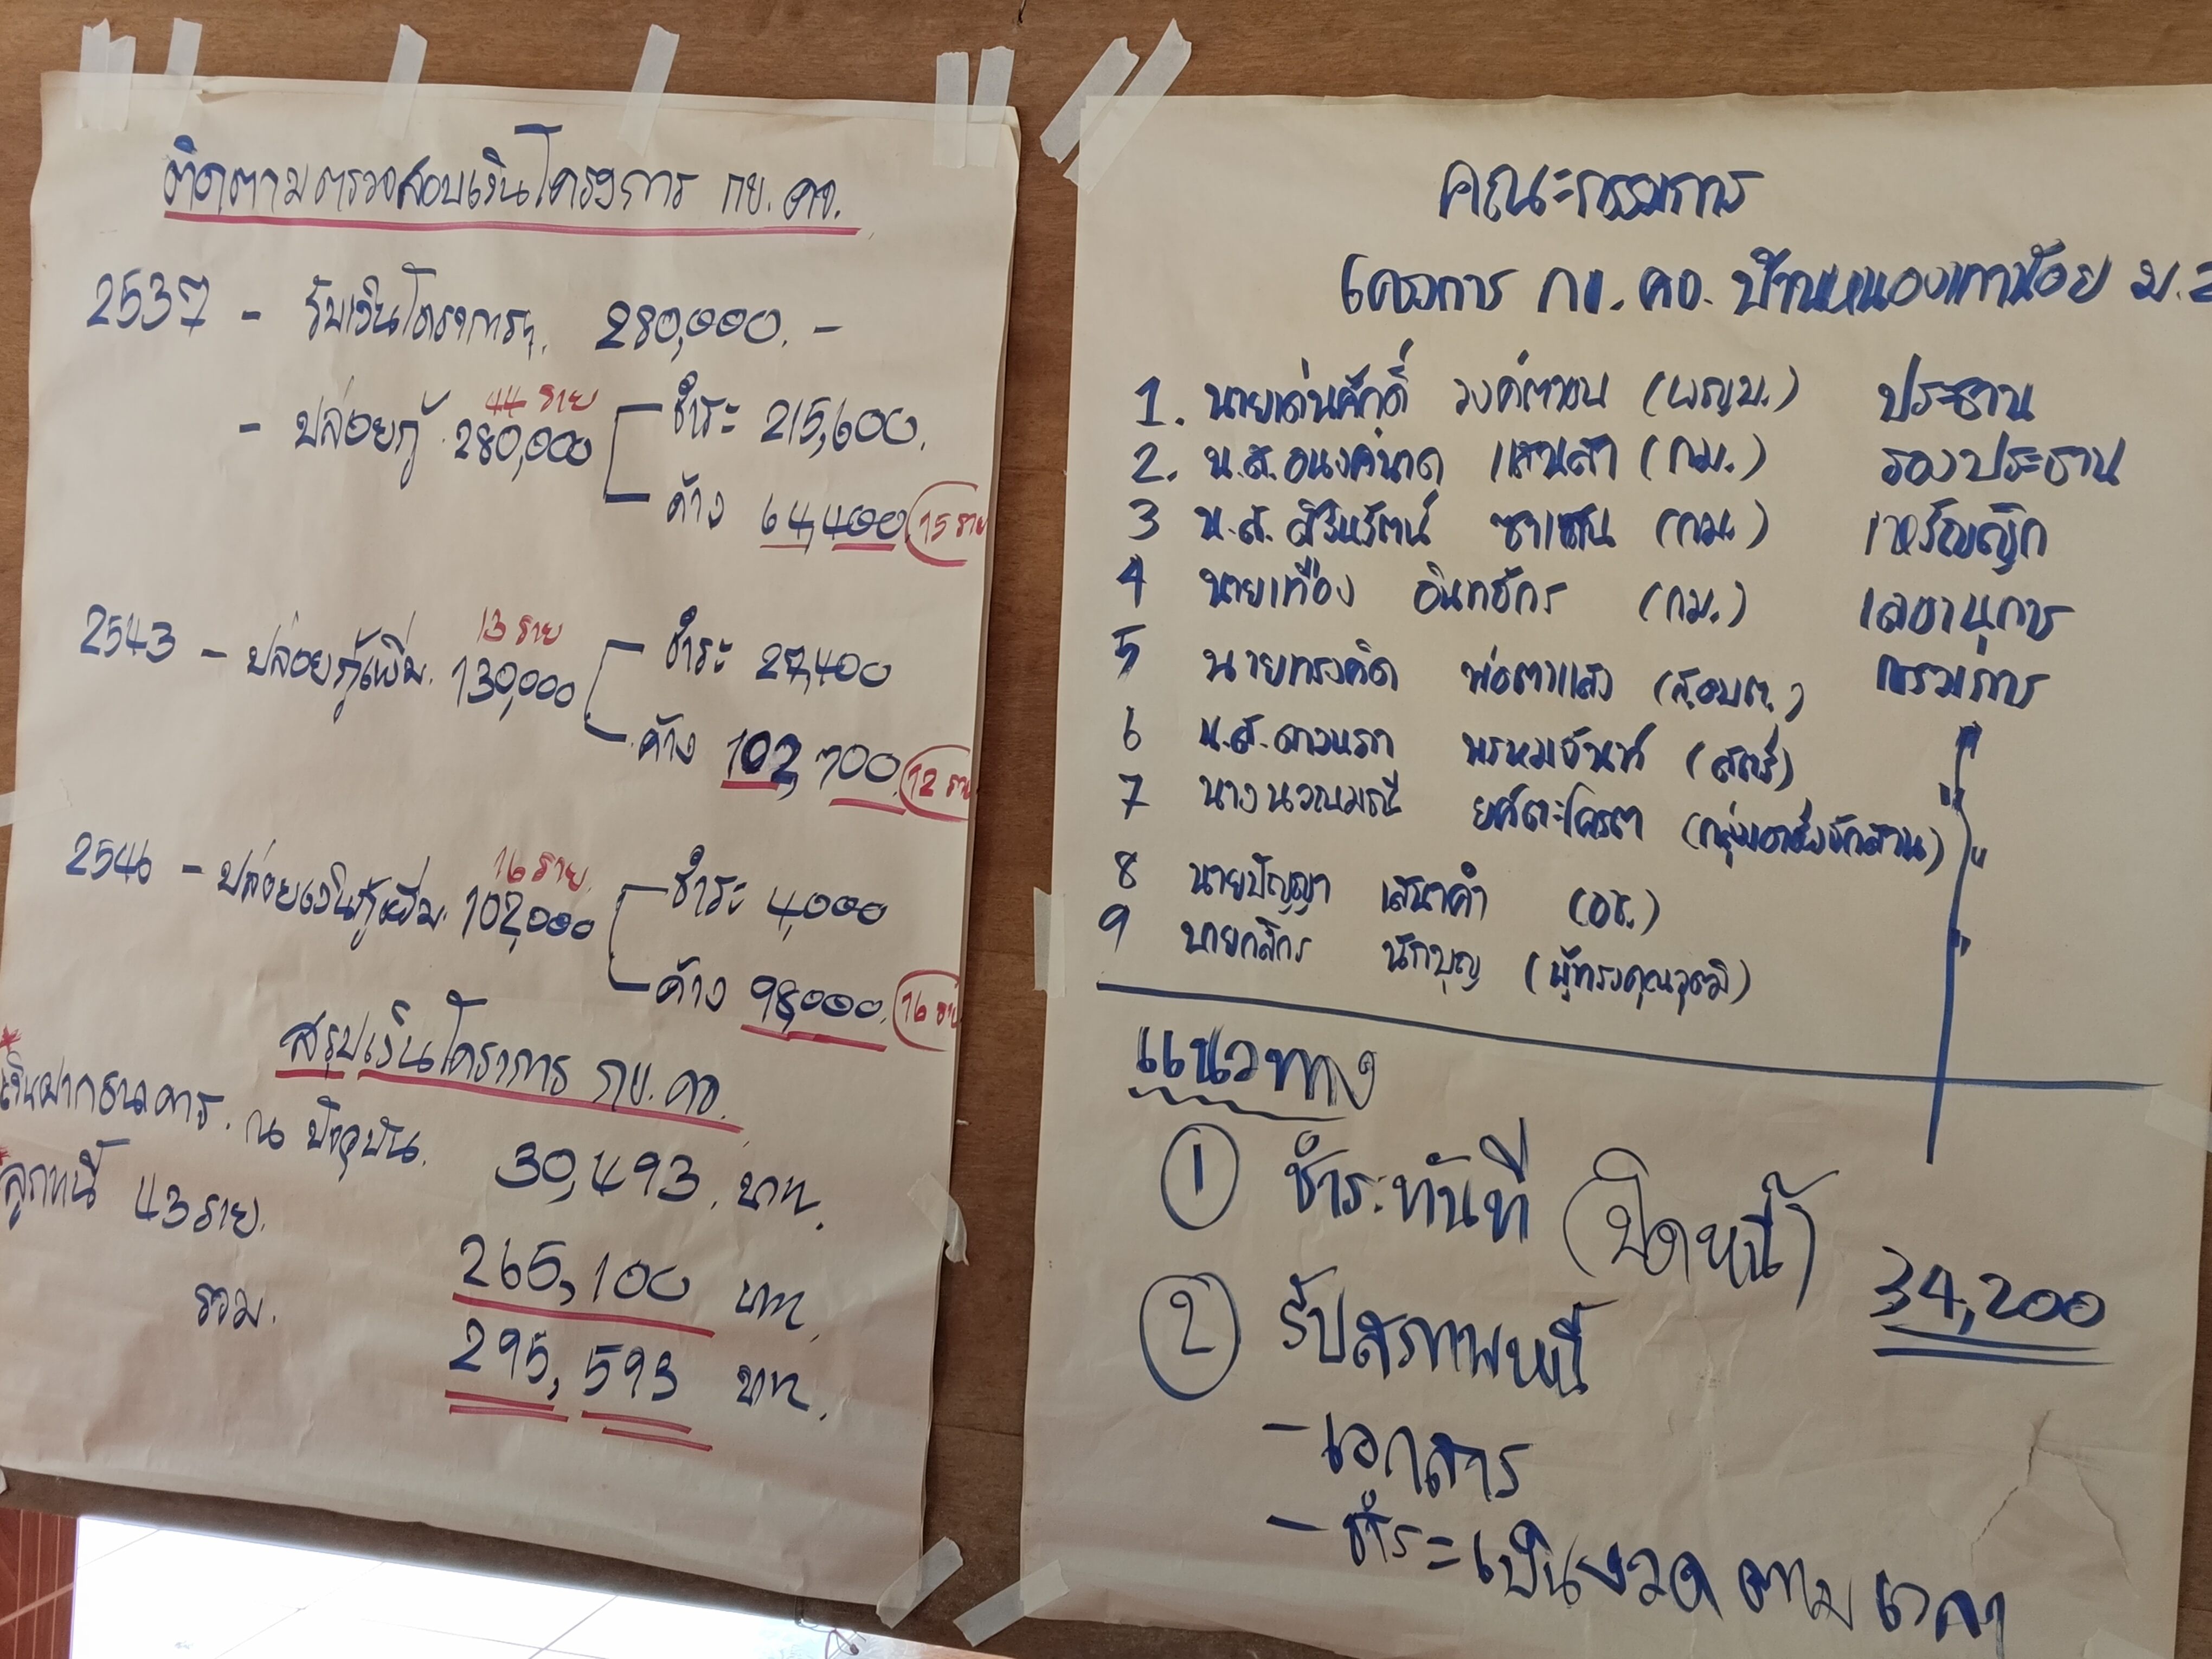 ติดตามตรวจสอบเงินโครงการ กข.คจ.
2537 - รับเงินโครงการฯ. 280,000.-
44 ราย
- ปล่อยกู้ 280,000 ชำระ 215,600.
ค้าง 64,400 15 ราย
13 ราย
2543 - ปล่อยกู้เพิ่ม. 130,000 ชำระ 27,400
ค้าง 102,700 12 ราย
16 ราย.
2546 - ปล่อยเงินกู้เพิ่ม. 102,000 ชำระ 4,000
ค้าง 98,000. 16 ราย
สรุปเงินโครงการ กข.คจ.
* เงินฝากธนาคาร. ณ ปัจจุบัน. 30,493. บาท.
* ลูกหนี้ 43 ราย. 265,100 บาท.
รวม. 295,593 บาท.
คณะกรรมการ
โครงการ กข.คจ. บ้านหนองแกน้อย ม.2
1. นายเด่นศักดิ์ วงค์ตาขบ (ผญบ.) ประธาน
2. น.ส.อนงค์นาถ แสนสา (กม.) รองประธาน
3 น.ส.สิรินรัตน์ (กม.) เหรัญญิก
4 นายเทือง อินทจักร (กม.) เลขานุการ
5 นายทรงคิด พ่อตาแสง (ส.อบต.) กรรมการ
6 น.ส.ดาวนภา พรหมจันทร์ (สตรี) "
7 นางนวลมณี ยศตะโคตา (กลุ่มอาชีพจักสาน) "
8 นายปัญญา เสนาคำ (อช.)
9 นายกสิกร นักบุญ (ผู้ทรงคุณวุฒิ) "
แนวทาง
① ชำระทันที (ปิดหนี้) 34,200
② รับสภาพหนี้
- เอกสาร
- ชำระเป็นงวด ตามเวลา